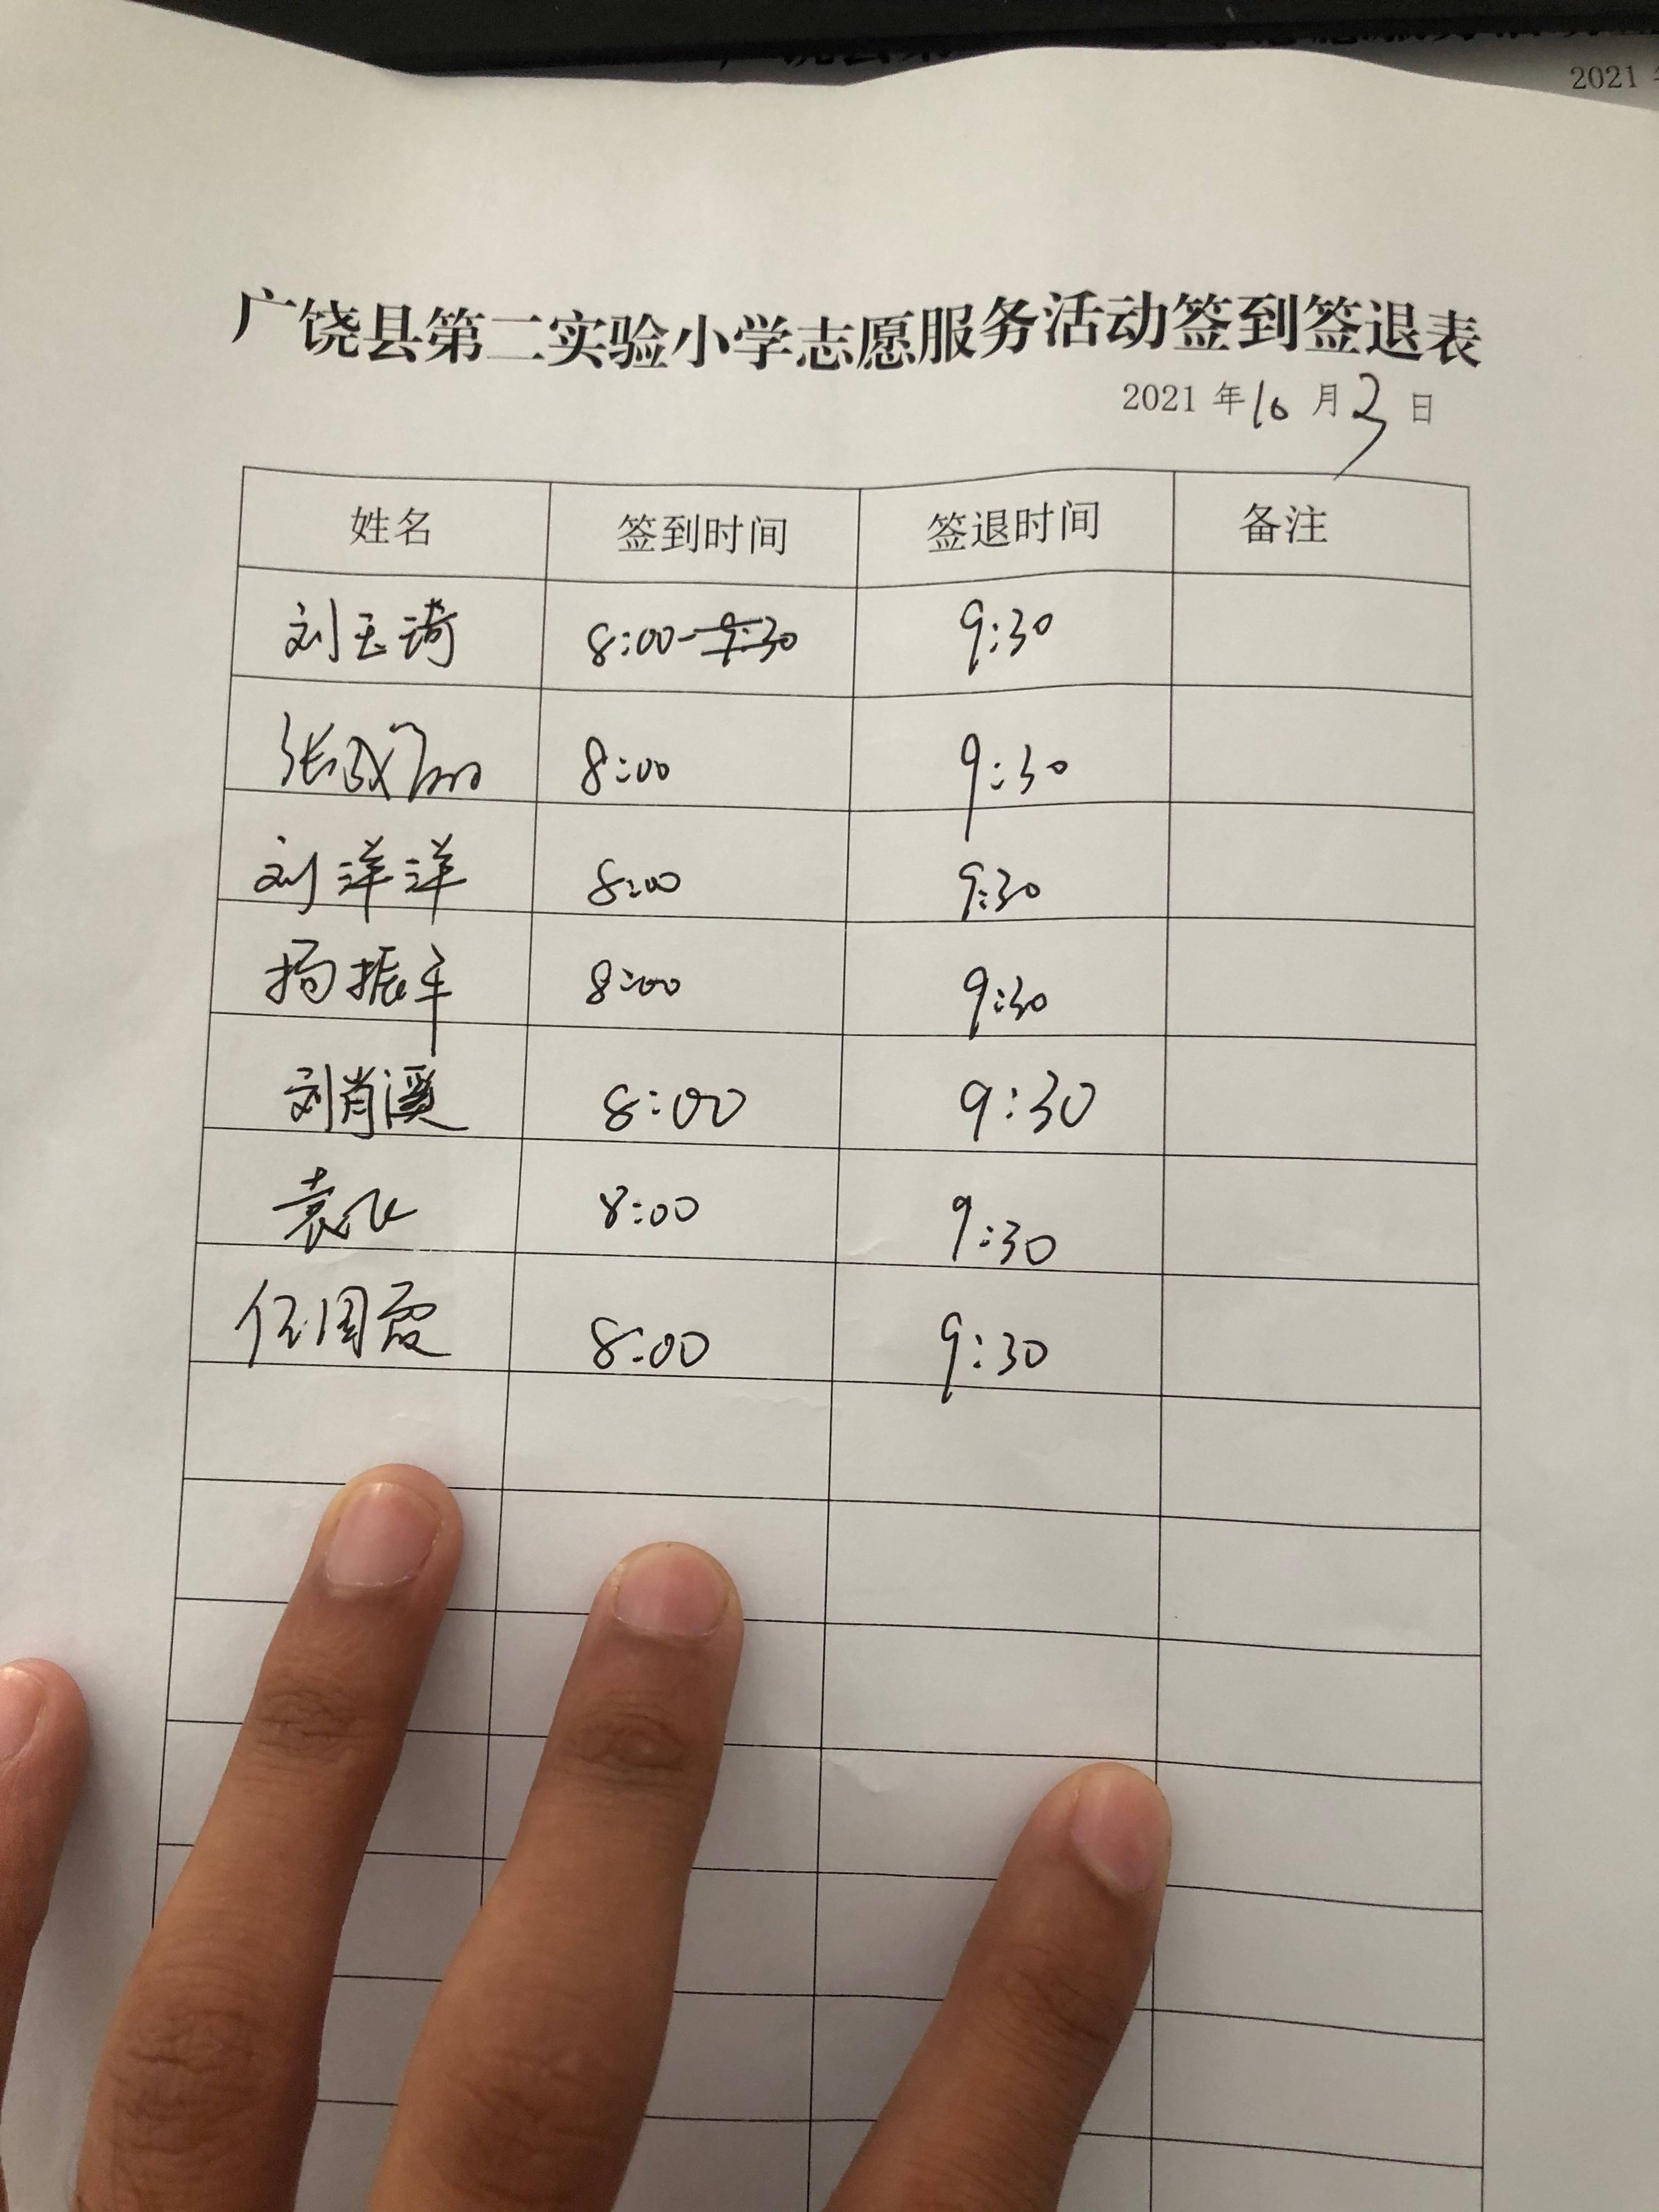 2021
广饶县第二实验小学志愿服务活动签到签退表
2021 年 10 月 3 日
姓名 签到时间 签退时间 备注
刘玉琦 8:00-9:30 9:30
张 8:00 9:30
刘洋洋 8:00 9:30
杨振军 8:00 9:30
刘肖溪 8:00 9:30
袁飞 8:00 9:30
任国霞 8:00 9:30